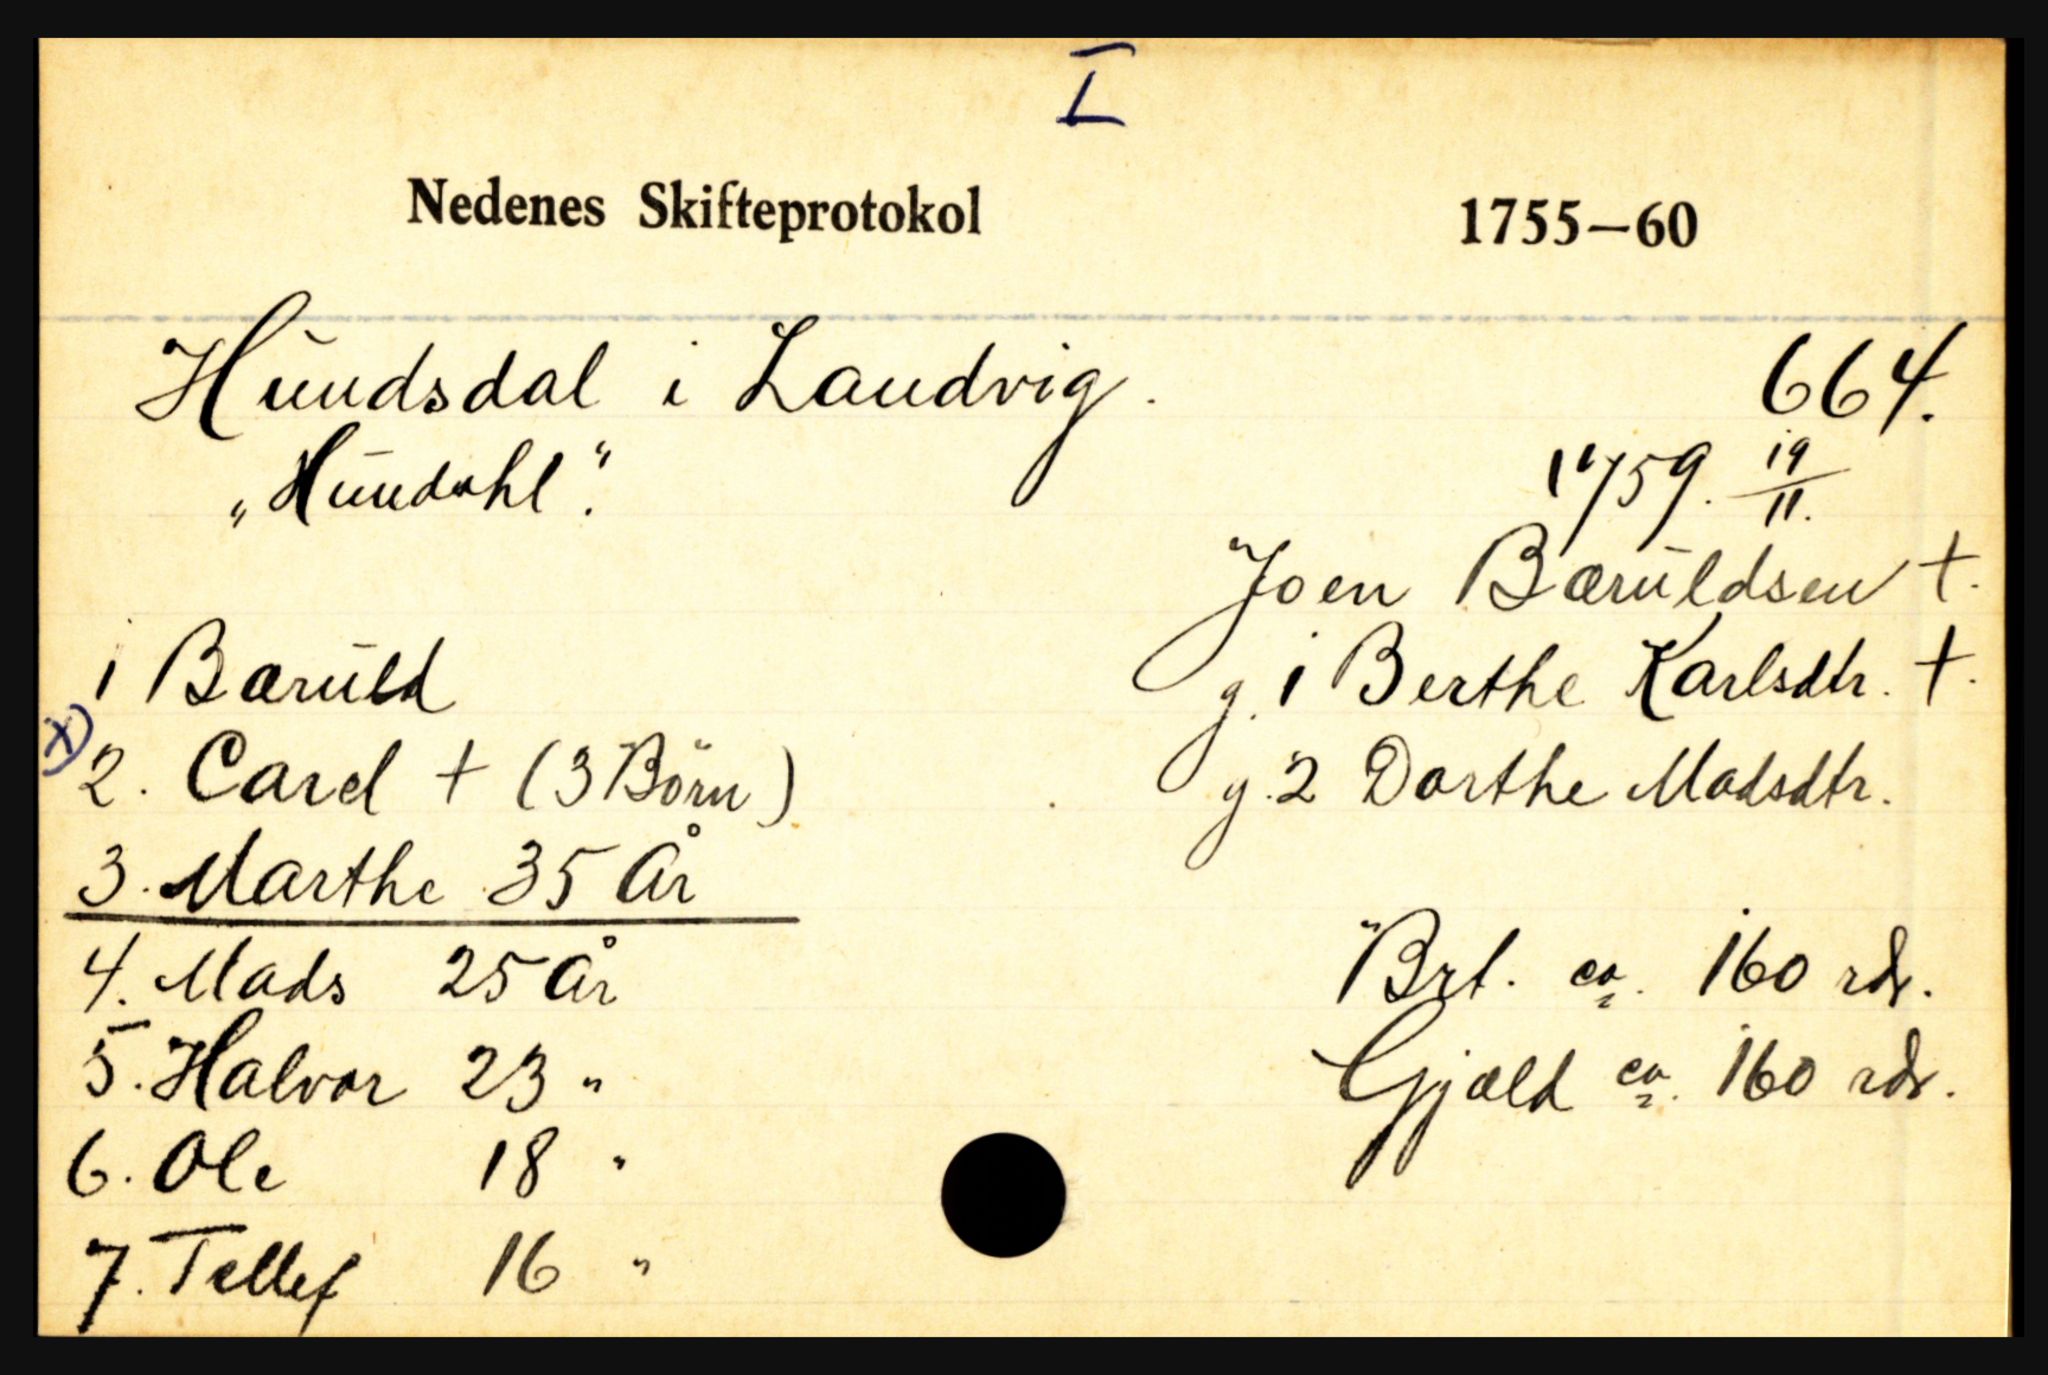 I
Nedenes Skifteprotokol 1755—60
Hundsdal i Landvig. 664.
„Hundahl“. 1759. 19/11.
Joen Bæruldsen +.
g. 1 Berthe Karlsdtr. +.
g. 2 Dorthe Madsdtr.
1 Bæruld
x) 2. Carel + (3 Börn)
3. Marthe 35 År
4. Mads 25 År
5. Halvor 23 "
6. Ole 18 "
7. Tellef 16 "
Brt. ca. 160 rdr.
Gjæld ca. 160 rdr.